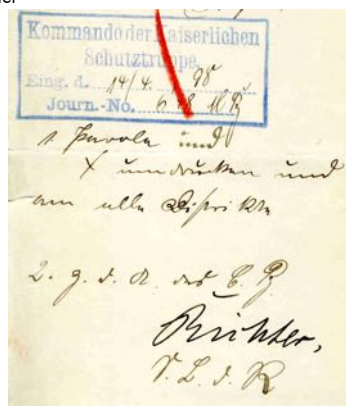 Kommando der Kaiserlichen
Schutztruppe.
Eing. d. 14/4. 98
Journ.-No. 618
1. Parole und
umdrucken und
an alle Distrikte
2. g. d. A. des
Richter,